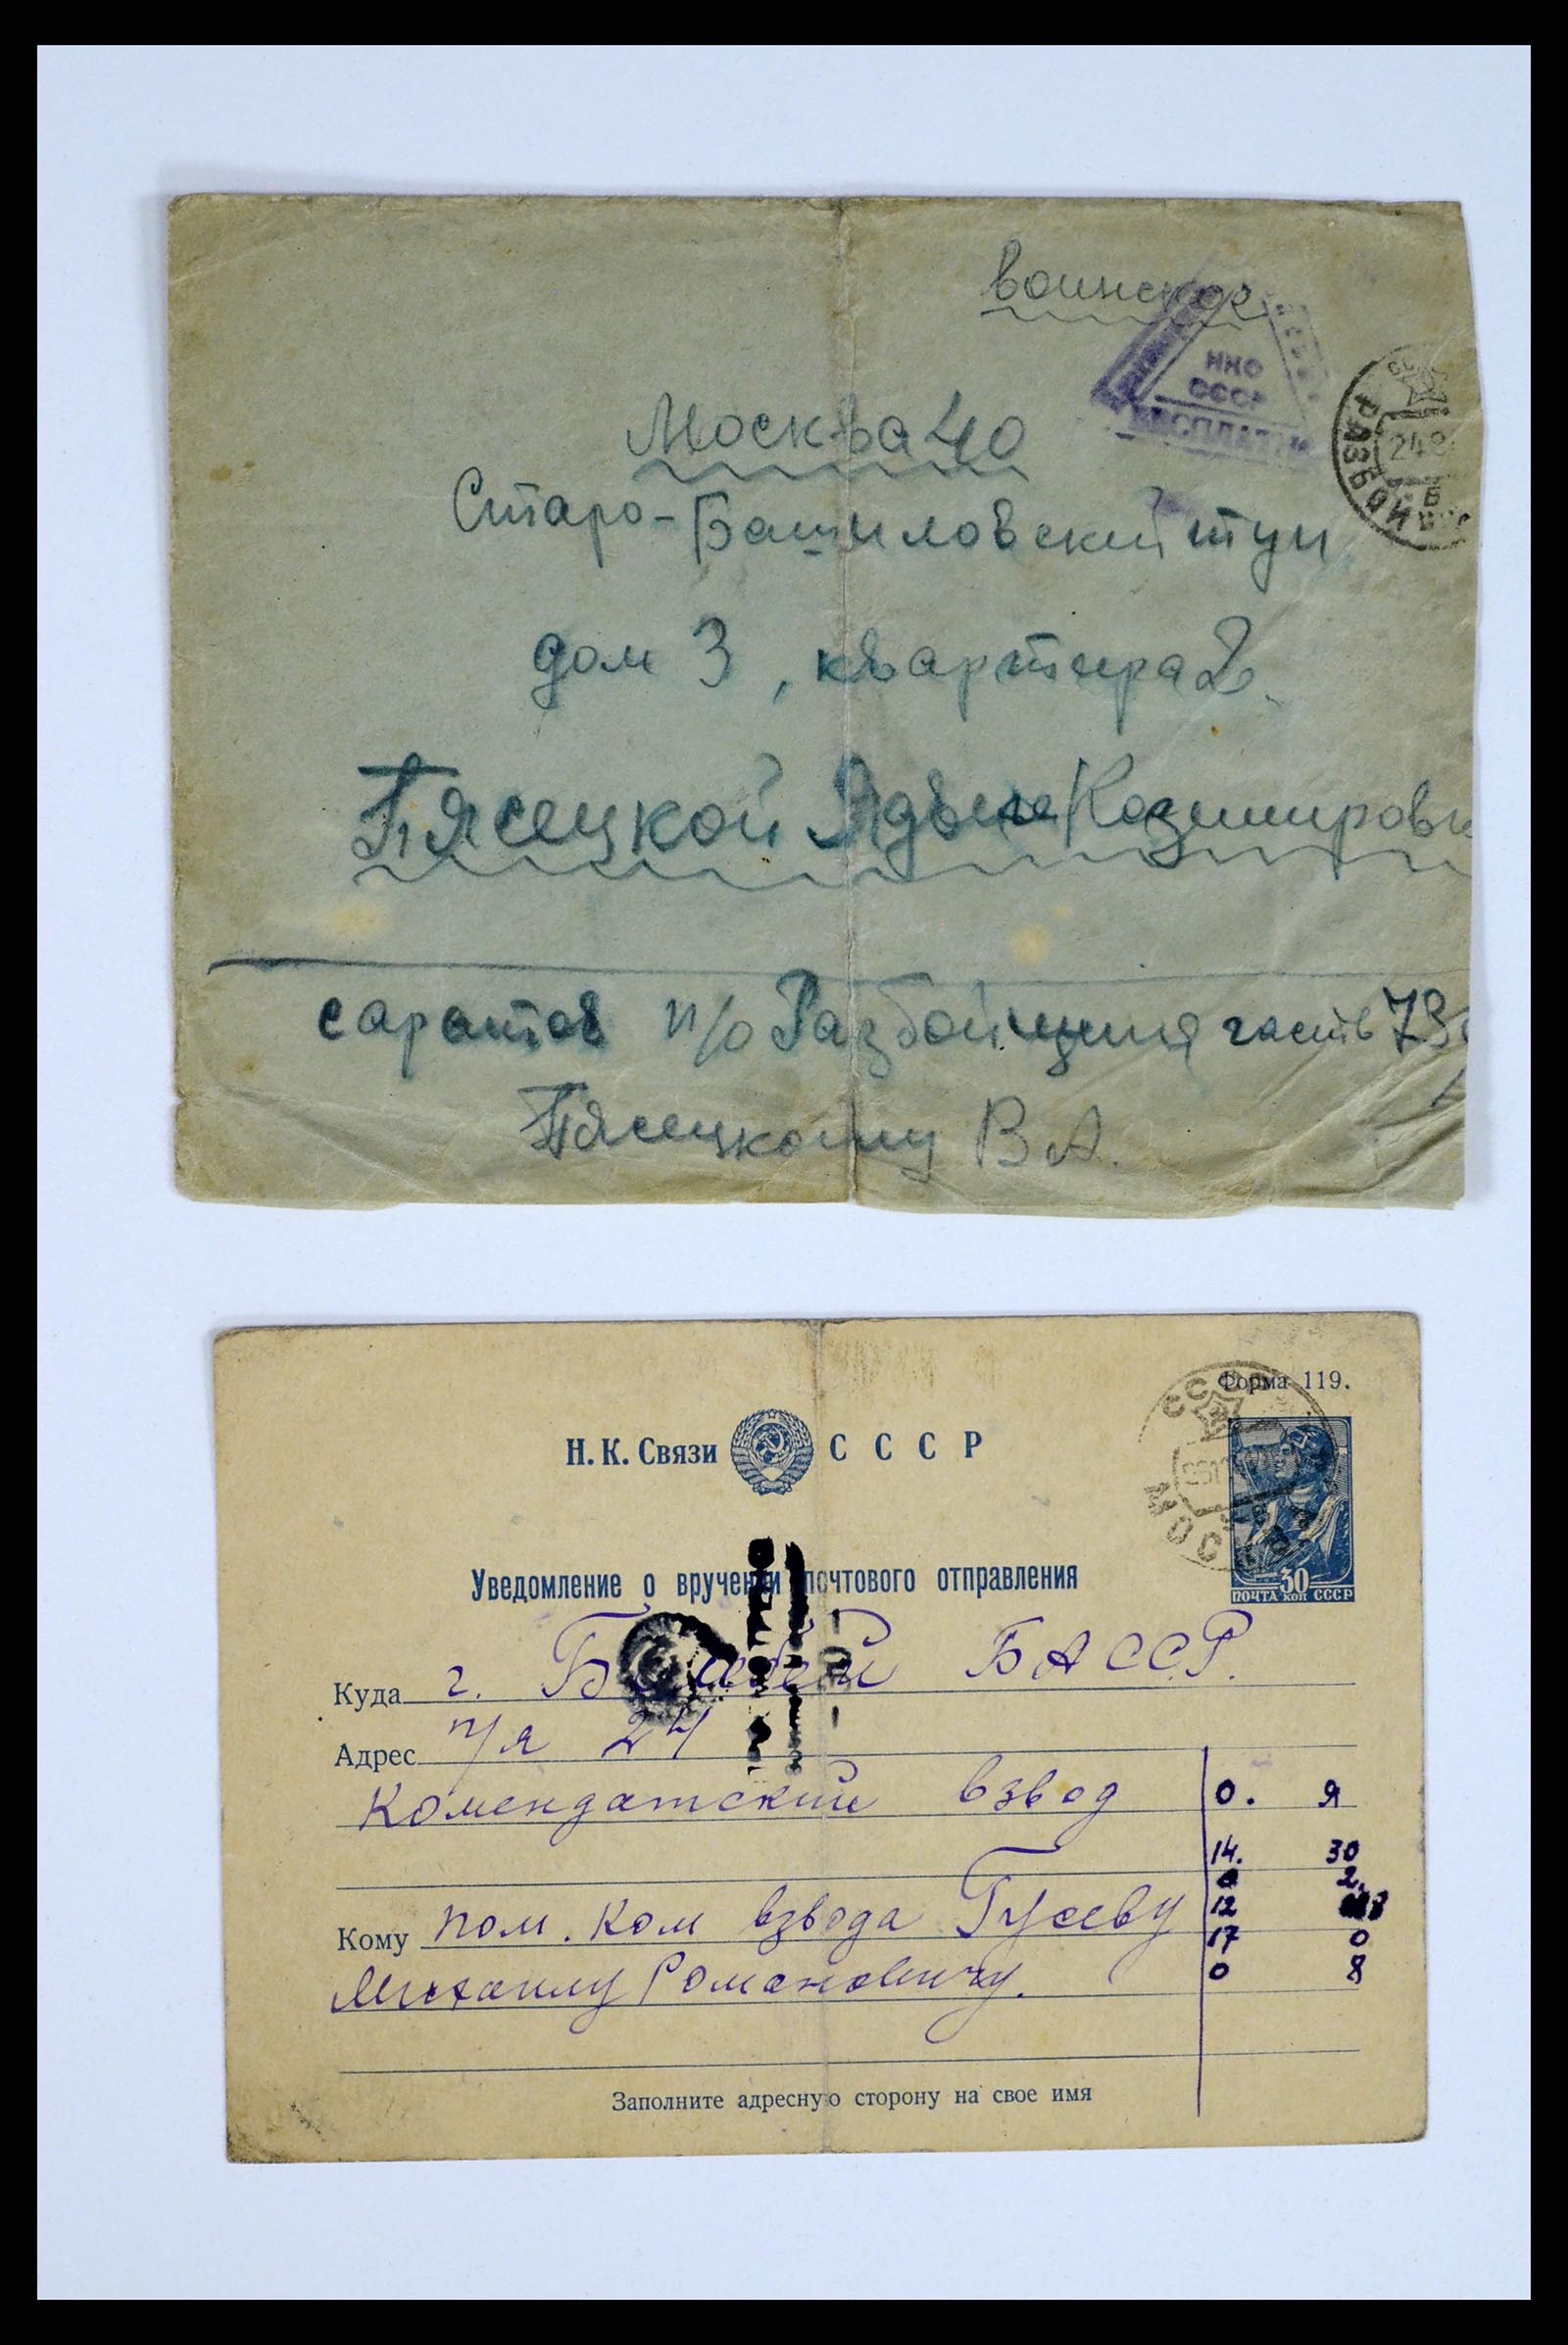 воинское
ННО
СССР
БЕСПЛАТН
РАЗБОЙ
Москва 40
Старо-Башиловский туп
дом 3, квартира 2
Пясецкой Ядвиге Казимировн
саратов п/о Разбойщина часть 73
Пясецкому В А.
Форма 119.
Н. К. Связи СССР
СССР
МОСКВА
30
ПОЧТА коп СССР
Уведомление о вручении почтового отправления
Куда г. Белебей БАССР.
Адрес п/я 24
Комендатский взвод
О. Я
14. 30
2.
12 8
17 0
0 8
Кому пом. Ком взвода Гусеву
Михаилу Романовичу.
Заполните адресную сторону на свое имя